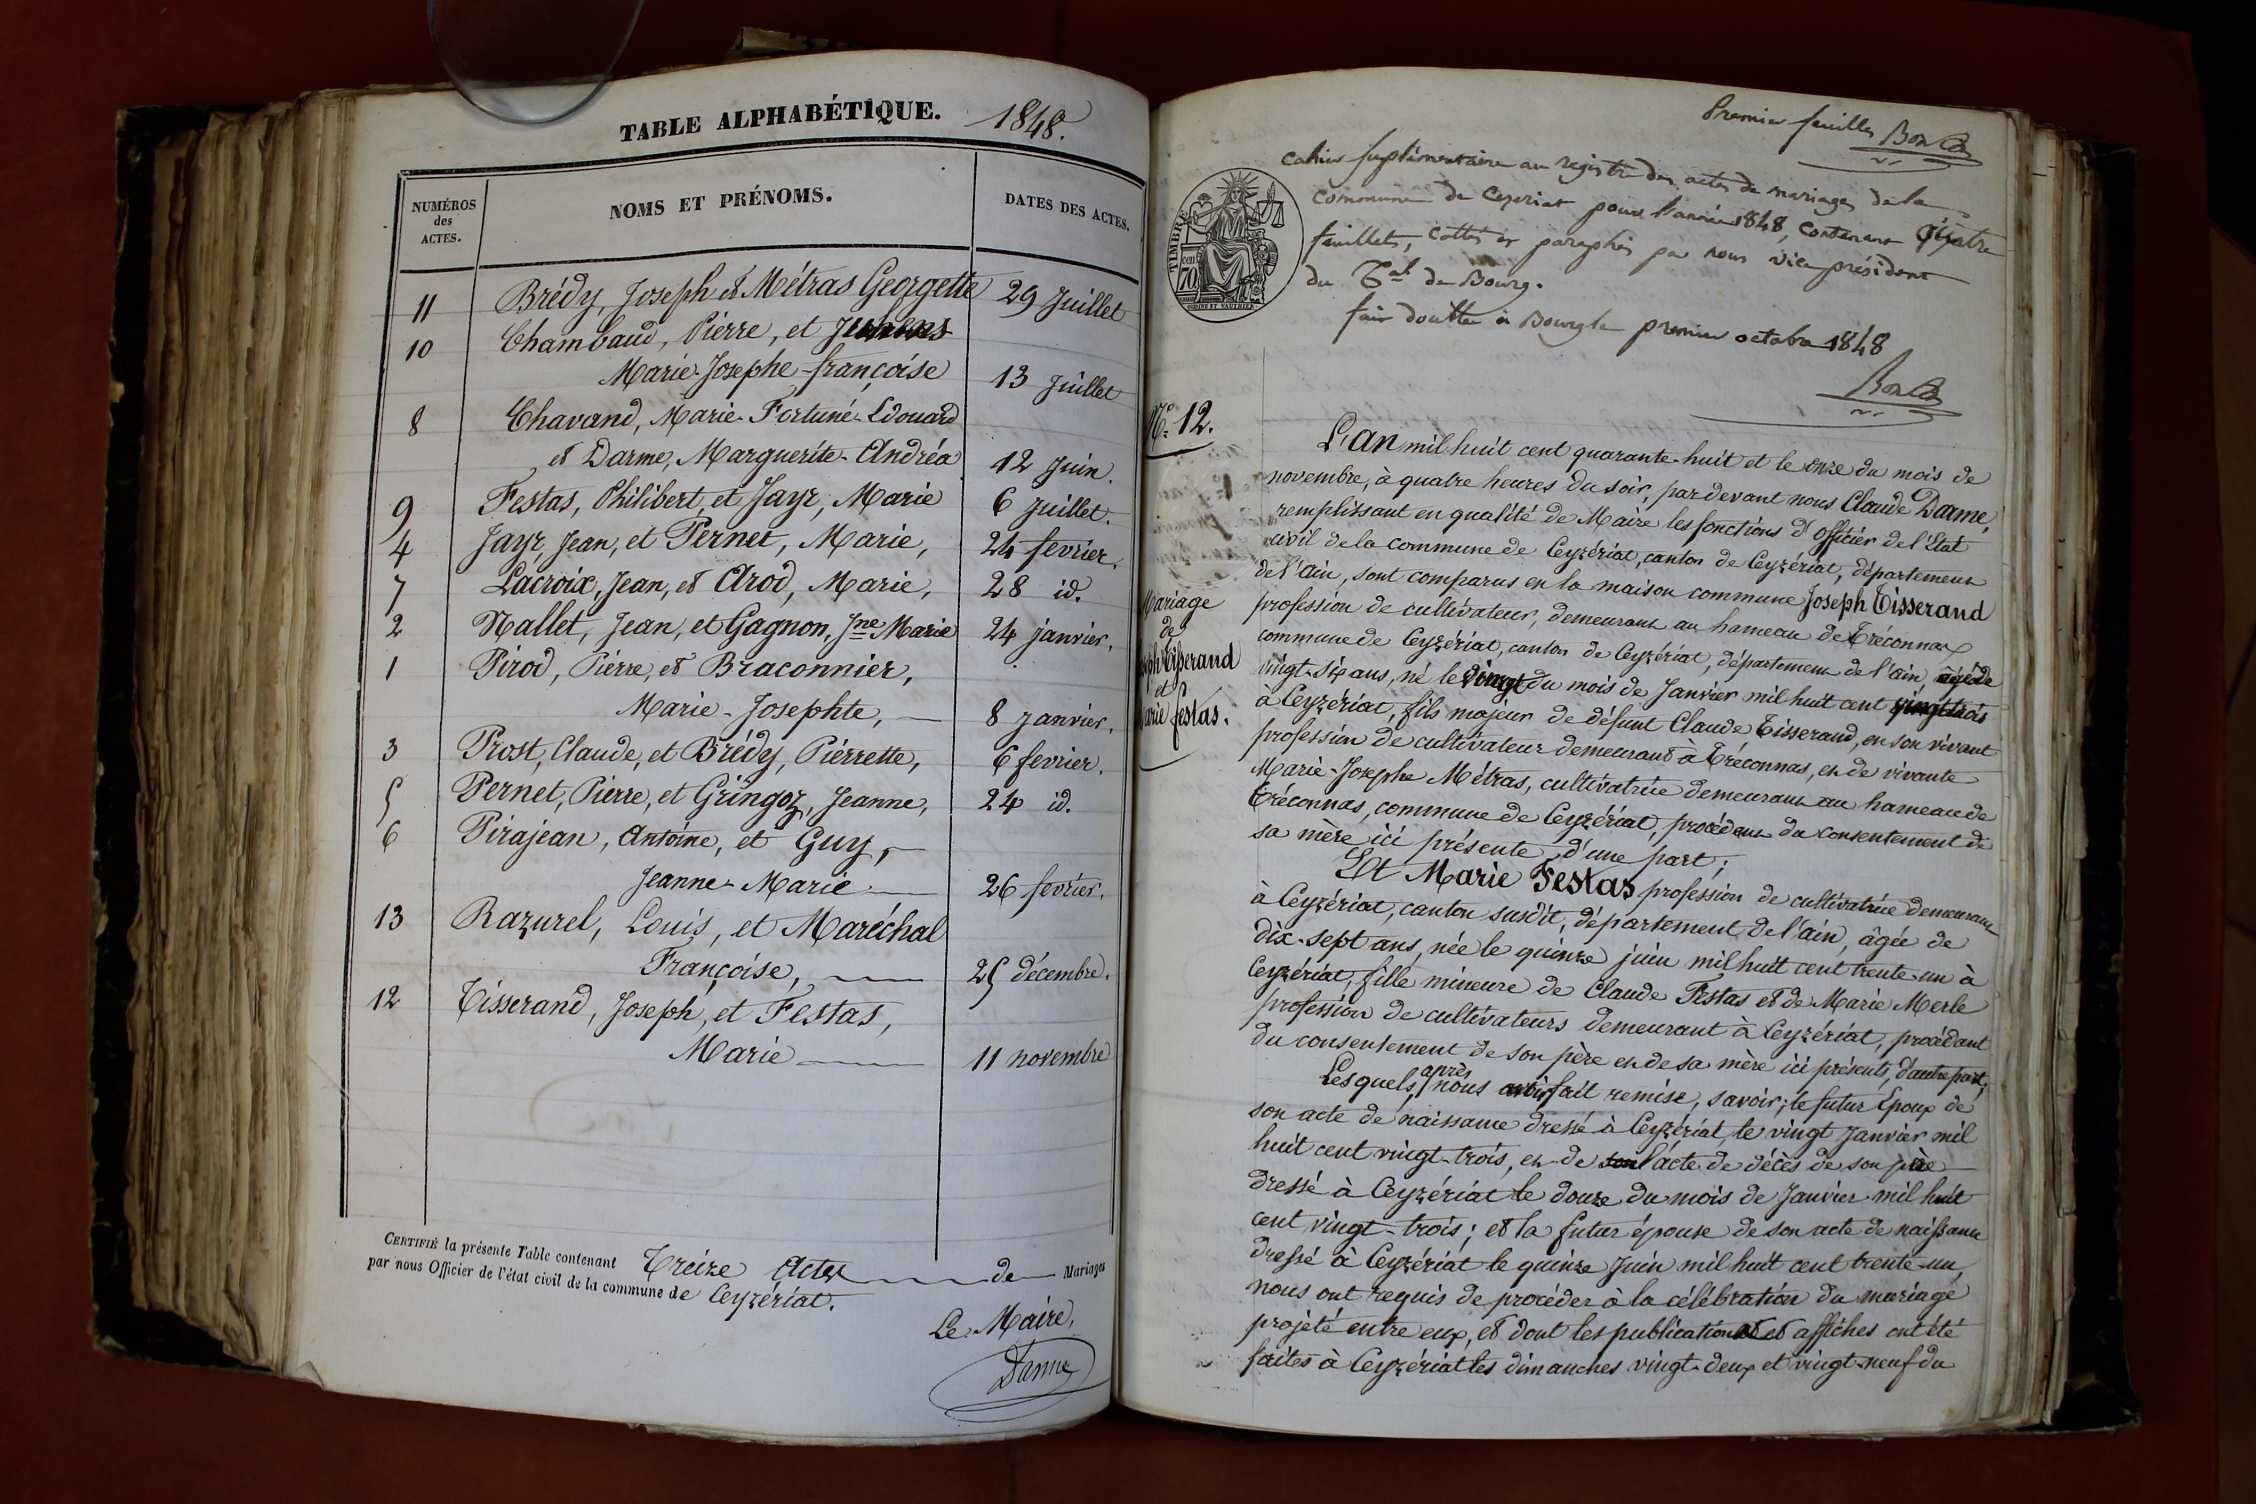 TABLE ALPHABÉTIQUE. 1848.
NUMÉROS
des
ACTES.
NOMS ET PRÉNOMS.
DATES DES ACTES.
11 Brédy, Joseph et Métras Georgette 29 Juillet
10 Chambaud, Pierre, et
Marie-Josephe-françoise 13 Juillet
8 Chavand, Marie-Fortuné-Edouard
et Darme, Marguerite-Andréa 12 Juin.
9 Festas, Philibert, et Jayr, Marie 6 Juillet.
4 Jayr, Jean, et Pernet, Marie, 24 fevrier.
7 Lacroix, Jean, et Arod, Marie, 28 id.
2 Nallet, Jean, et Gagnon, Jne Marie 24 janvier.
1 Pirod, Pierre, et Braconnier,
Marie-Josephte, 8 janvier.
3 Prost, Claude, et Brédy, Pierrette, 6 fevrier.
5 Pernet, Pierre, et Gringoz, Jeanne, 24 id.
6 Pirajean, Antoine, et Guy,
Jeanne-Marie 26 fevrier.
13 Razurel, Louis, et Maréchal
Françoise, 25 décembre.
12 Tisserand, Joseph, et Festas,
Marie 11 novembre
CERTIFIÉ la présente Table contenant Treize Actes de Mariages
par nous Officier de l'état civil de la commune de Ceyzériat.
Le Maire,
Darme
Premier feuillet
cahier suplémentaire au registre des actes de mariages de la
commune de Ceyzeriat pour l'année 1848, contenant quatre
feuillets, cottés et paraphés par nous vice président
du Tal de Bourg.
fait double à Bourg le premier octobre 1848
TIMBRE
70
No. 12.
Mariage
de
Joseph Tisserand
et
Marie festas.
L'an mil huit cent quarante-huit et le onze du mois de
novembre, à quatre heures du soir, pardevant nous Claude Darme,
remplissant en qualité de Maire les fonctions d'officier de l'Etat
civil de la commune de Ceyzériat, canton de Ceyzériat, département
de l'ain, sont comparus en la maison commune Joseph Tisserand
profession de cultivateur, demeurant au hameau de Tréconnax
commune de Ceyzériat, canton de Ceyzériat, département de l'ain, âgé de
vingt-six ans, né le vingt du mois de Janvier mil huit cent vingt trois
à Ceyzériat, fils majeur de défunt Claude Tisserand, en son vivant
profession de cultivateur demeurant à Tréconnas, et de vivante
Marie-Josephe Métras, cultivatrice demeurant au hameau de
Tréconnas, commune de Ceyzériat, procédant du consentement de
sa mère ici présente, d'une part;
Et Marie Festas profession de cultivatrice demeurant
à Ceyzériat, canton susdit, département de l'ain, âgée de
dix-sept ans, née le quinze juin mil huit cent trente-un à
Ceyzériat, fille mineure de Claude Festas et de Marie Merle
profession de cultivateurs demeurant à Ceyzériat, procédant
du consentement de son père et de sa mère ici présents, d'autre part;
Lesquels, après nous avoir fait remise, savoir; le futur Epoux de
son acte de naissance dressé à Ceyzériat, le vingt Janvier mil
huit cent vingt-trois, et de son l'acte de décès de son père
dressé à Ceyzériat le douze du mois de Janvier mil huit
cent vingt-trois; et la futur épouse de son acte de naissance
dressé à Ceyzériat le quinze Juin mil huit cent trente-un,
nous ont requis de procéder à la célébration du mariage
projeté entre eux, et dont les publications et affiches ont été
faites à Ceyzériat les dimanches vingt-deux et vingt-neuf du